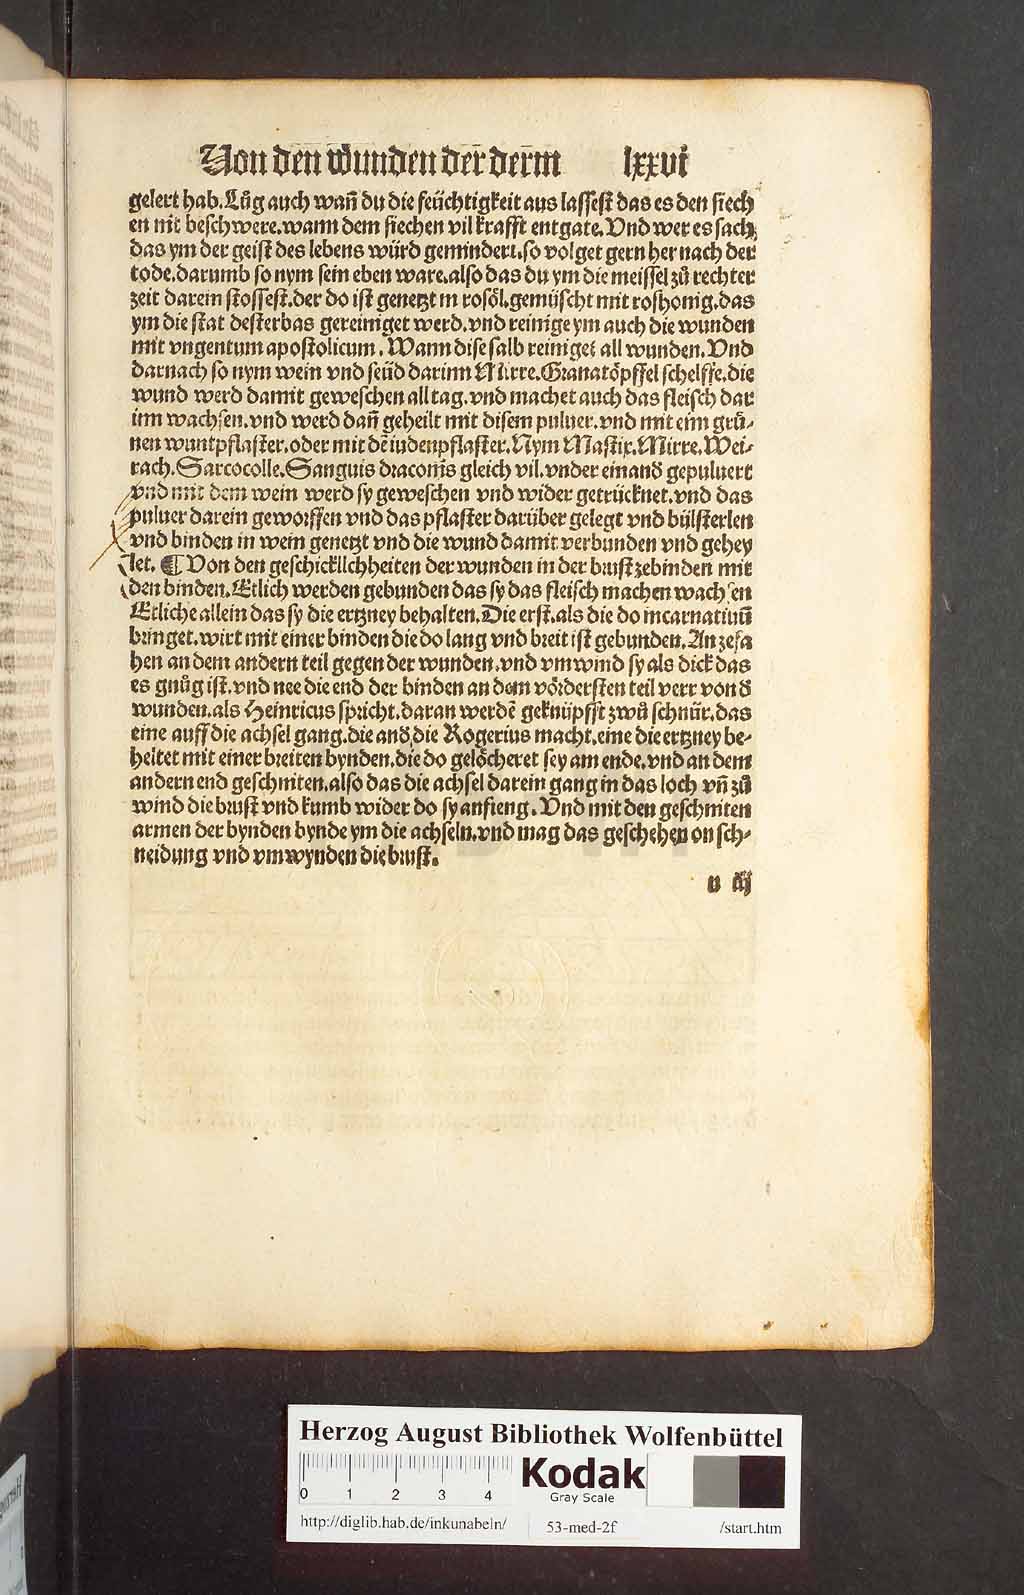 Von den wunden der derm lxxvi
gelert hab. Lůg auch wañ du die feüchtigkeit aus lassest das es den siech
en nit beschwere. wann dem siechen vil krafft entgate. Vnd wer es sach
das ym der geist des lebens würd gemindert. so volget gern her nach der
tode. darumb so nym sein eben ware. also das du ym die meissel zů rechter
zeit darein stossest. der do ist genetzt in rosöl. gemüscht mit roshonig. das
ym die stat desterbas gereiniget werd. vnd reinige ym auch die wunden
mit vngentum apostolicum. Wann dise salb reiniget all wunden. Vnd
darnach so nym wein vnd seüd darinn Mirre. Granatöpffel schelffe. die
wund werd damit geweschen all tag. vnd machet auch das fleisch dar
inn wachsen. vnd werd dañ geheilt mit disem puluer. vnd mit eim grů-
nen wuntpflaster. oder mit dē iudenpflaster. Nym Mastix. Mirre. Wei-
rach. Sarcocolle. Sanguis draconis gleich vil. vnder einand gepuluert
vnd mit dem wein werd sy geweschen vnd wider getrücknet. vnd das
puluer darein geworffen vnd das pflaster darüber gelegt vnd bülsterlen
vnd binden in wein genetzt vnd die wund damit verbunden vnd gehey
let. ¶ Von den geschickllchheiten der wunden in der brust zebinden mit
den binden. Etlich werden gebunden das sy das fleisch machen wachsen
Etliche allein das sy die ertzney behalten. Die erst. als die do incarnatiuū
bringet. wirt mit einer binden die do lang vnd breit ist gebunden. An zefa
hen an dem andern teil gegen der wunden. vnd vmwind sy als dick das
es gnůg ist. vnd nee die end der binden an dem vördersten teil verr von d
wunden. als Heinricus spricht. daran werdē geknüpfft zwů schnůr. das
eine auff die achsel gang. die and die Rogerius macht. eine die ertzney be-
heltet mit einer breiten bynden. die do gelöcheret sey am ende. vnd an dem
andern end geschniten. also das die achsel darein gang in das loch vñ zů
wind die brust vnd kumb wider do sy anfieng. Vnd mit den geschniten
armen der bynden bynde ym die achseln. vnd mag das geschehen on sch-
neidung vnd vmwynden die brust.
n iij
Herzog August Bibliothek Wolfenbüttel
0 1 2 3 4
Kodak
Gray Scale
http://diglib.hab.de/inkunabeln/ 53-med-2f /start.htm